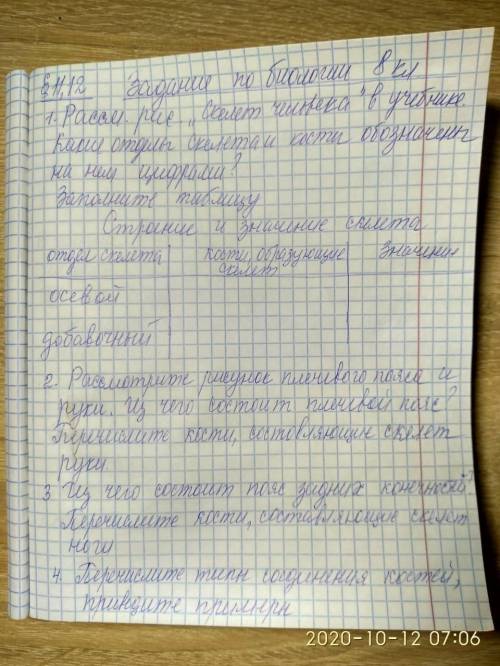 §11,12 Задание по биологии 8 кл
1. Рассм. рис „Скелет человека" в учебнике.
Какие отделы скелета и кости обозначены
на нем цифрами?
Заполните таблицу
Строение и значение скелета
отдел скелета кости, образующие скелет Значение
осевой
добавочный
2. Рассмотрите рисунок плечевого пояса и
руки. Из чего состоит плечевой пояс?
Перечислите кости, составляющие скелет
руки.
3 Из чего состоит пояс задних конечностей?
Перечислите кости, составляющие скелет
ноги
4. Перечислите типы соединения костей,
приведите примеры
2020-10-12 07:06